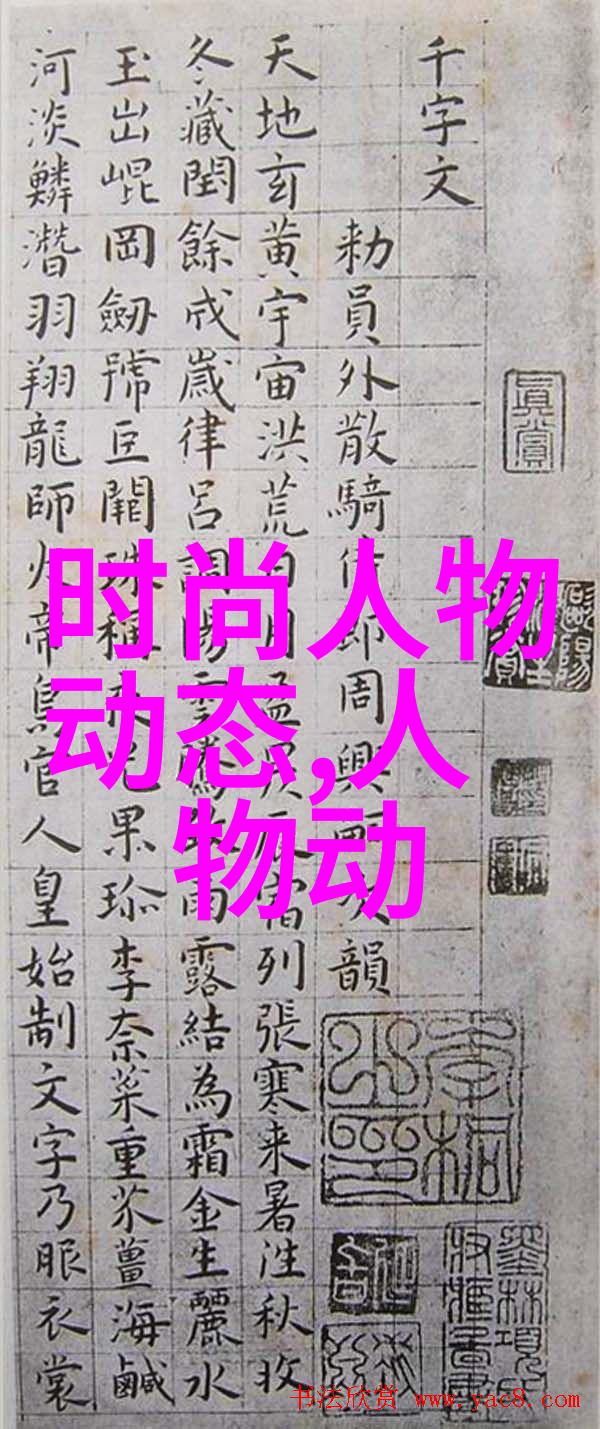 千字文
勑員外散騎侍郎周興嗣次韻
天地玄黄宇宙洪荒日月盈昃辰宿列張寒来暑往秋收
冬藏閏餘成歲律吕調陽雲騰致雨露結為霜金生麗水
玉出崐岡劒號巨闕珠稱夜光果珎李柰菜重芥薑海鹹
河淡鱗潛羽翔龍師火帝鳥官人皇始制文字乃服衣裳
真賞
时尚人物
动态,人
物动
书法欣赏 www.yac8.com